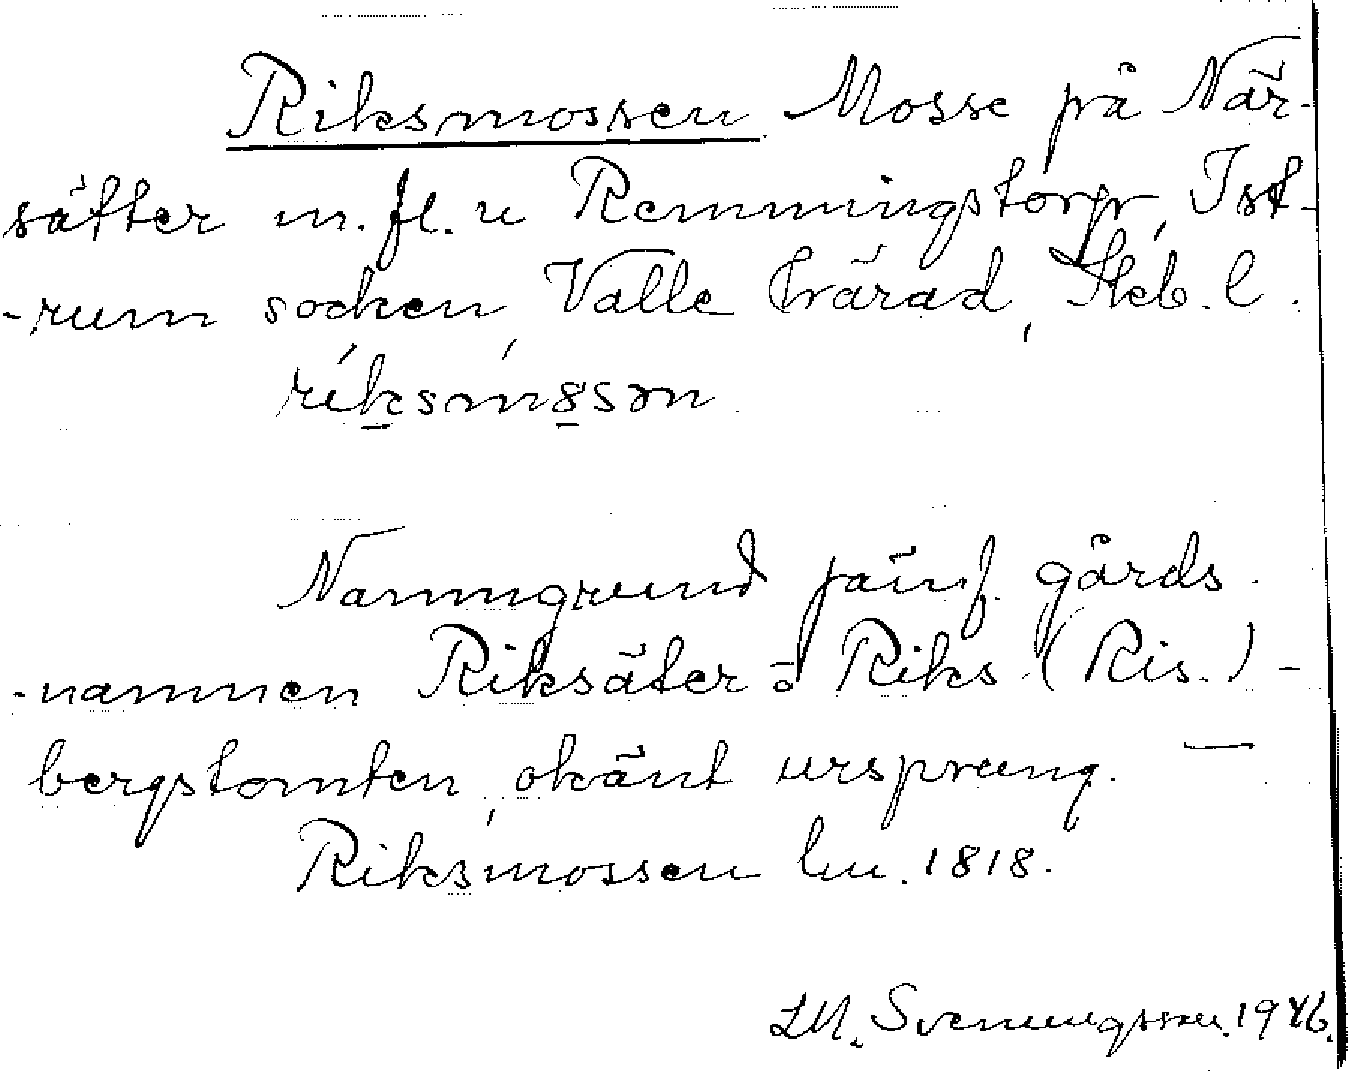 Riksmossen Mosse på När-
sätter m.fl. u Remmingstorp, Ist-
-rum socken, Valle härad, Skb. l.
ríksm8̱sən
Namngrund jämf. gårds
-namnen Riksäter o Riks (Ris.) -
bergstomten, okänt ursprung. —
Riksmossen lm. 1818.
LM. Svenungsson. 1946.